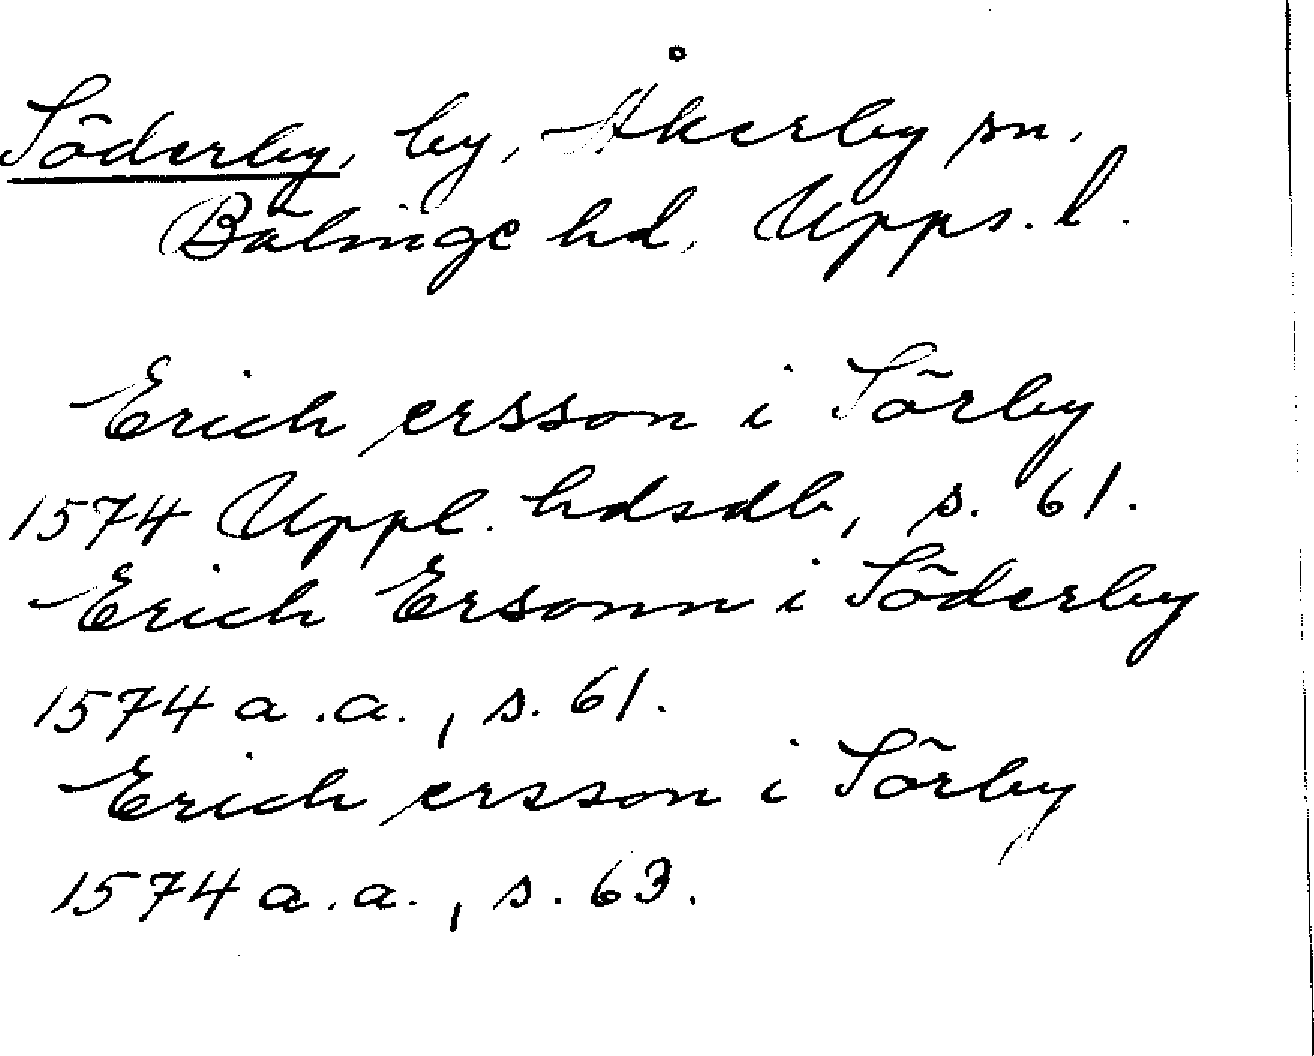 Söderby, by, Åkerby sn,
Bälinge hd, Upps. l.
Erich ersson i Sörby
1574 Uppl. hdsdb, s. 61.
Erich Ersonn i Söderby
1574 a.a., s. 61.
Erich ersson i Sörby
1574 a.a., s. 63.